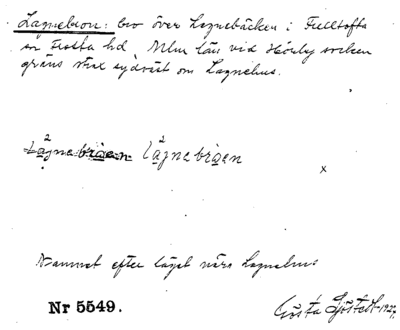 Lagnebron: bro över Lagnebäcken i Fulltofta
sn Frosta hd, Mlm län vid Hörby socken
gräns NNE sydväst om Lagnehus.
2
lạjnebrọen
x
Namnet efter läget nära Lagnehus
Nr 5549.
Gösta Sjöstedt 1927